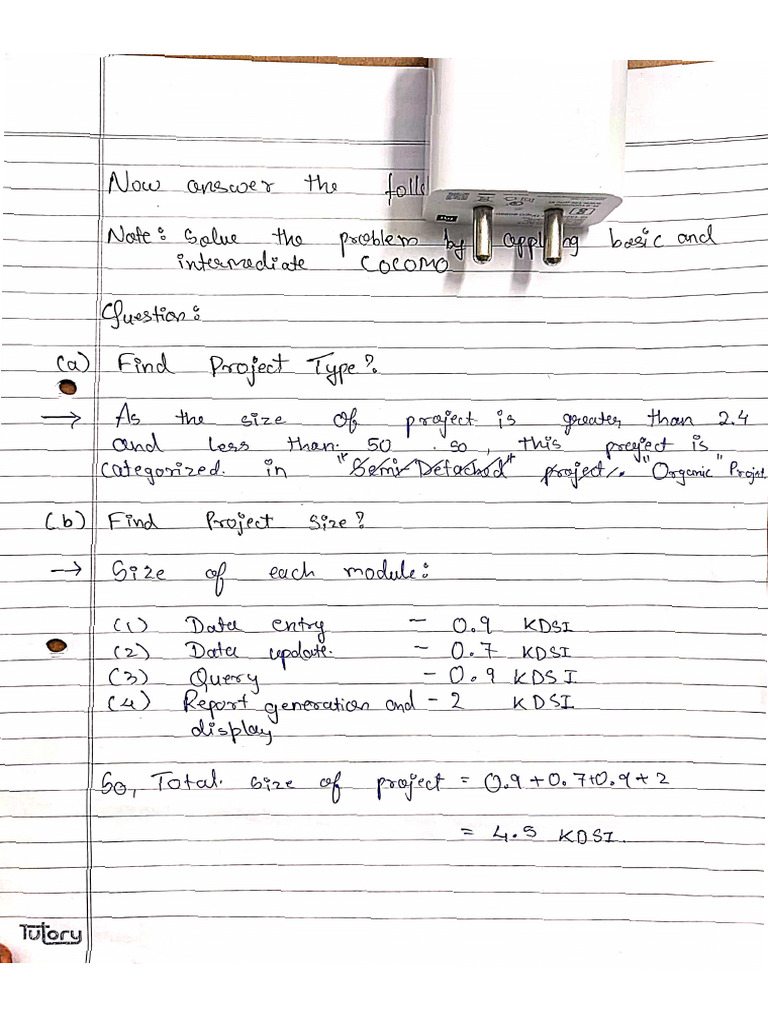 Now answer the foll
Note: Solve the problem by applying basic and
intermediate COCOMO
Question:
(a) Find Project Type?
→ As the size of project is greater than 2.4
and less than 50 . so, this project is
categorized. in "Semi-Detached" project. "Organic" Projet
(b) Find Project Size?
→ Size of each module:
(1) Data entry - 0.9 KDSI
(2) Data update. - 0.7 KDSI
(3) Query - 0.9 KDSI
(4) Report generation and - 2 KDSI
display
So, Total. size of project = 0.9+0.7+0.9+2
= 4.5 KDSI.
Tutory